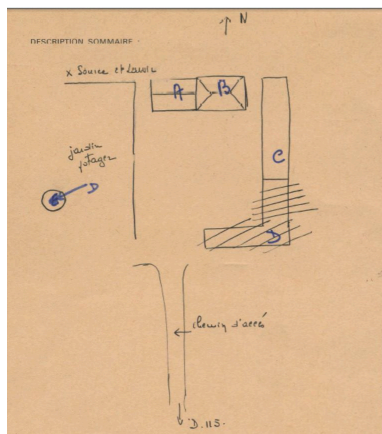 ↑ N
DESCRIPTION SOMMAIRE :
x Source et Lavoir
A B
jardin
potager
C
D
D
chemin d'accés
D.115.